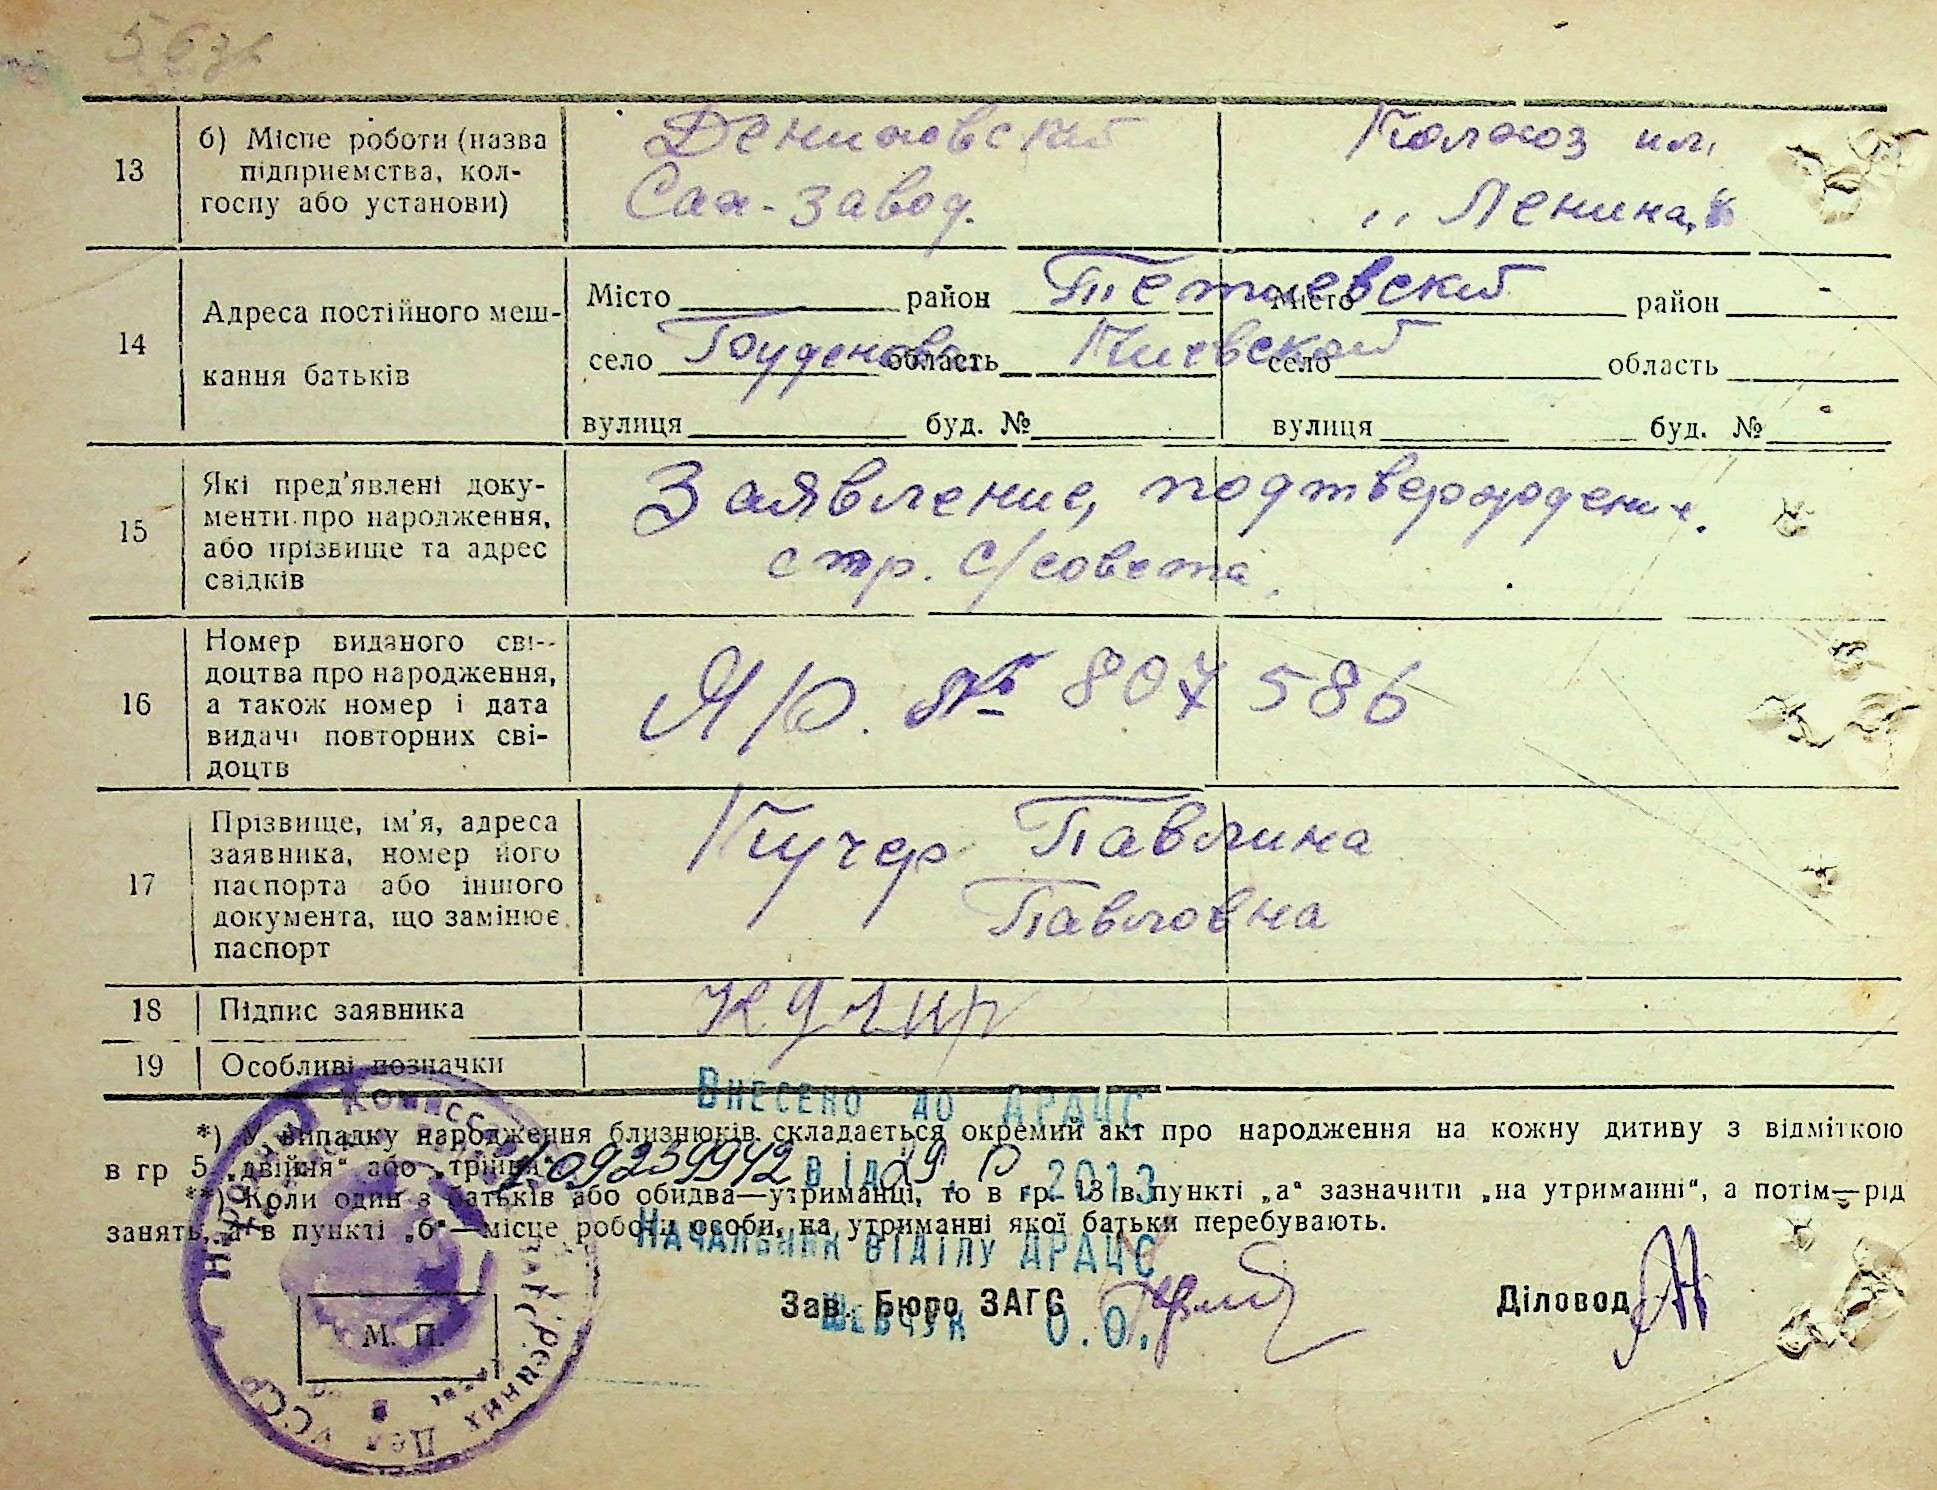 13
б) Місце роботи (назва
підприємства, кол-
госпу або установи)
Сах-завод.
Колхоз им.
„Ленина"
14
Адреса постійного меш-
кання батьків
Місто район Тетиевский
село область Киевской
вулиця буд. №
Місто район
село область
вулиця буд. №
15
Які пред'явлені доку-
менти про народження,
або прізвище та адрес
свідків
Заявление, подтверждение.
стр. с/совета.
16
Номер виданого сві-
доцтва про народження,
а також номер і дата
видачі повторних сві-
доцтв
ЯЮ. № 807586
17
Прізвище, ім'я, адреса
заявника, номер його
паспорта або іншого
документа, що замінює
паспорт
Кучер Павлина
Павловна
18
Підпис заявника
19
Особливі позначки
Внесено до ДРАЦС
*) У випадку народження близнюків складається окремий акт про народження на кожну дитину з відміткою
в гр 5 „двійня“ або „трійня“
від 29 2013
**) Коли один з батьків або обидва—утриманці, то в гр. 13 в пункті „а“ зазначити „на утриманні“, а потім—рід
занять, а в пункті „б“—місце роботи особи, на утриманні якої батьки перебувають.
Начальник відділу ДРАЦС
Шевчук О.О.
Зав. Бюро ЗАГС
Діловод
М. П.
Дел УССР